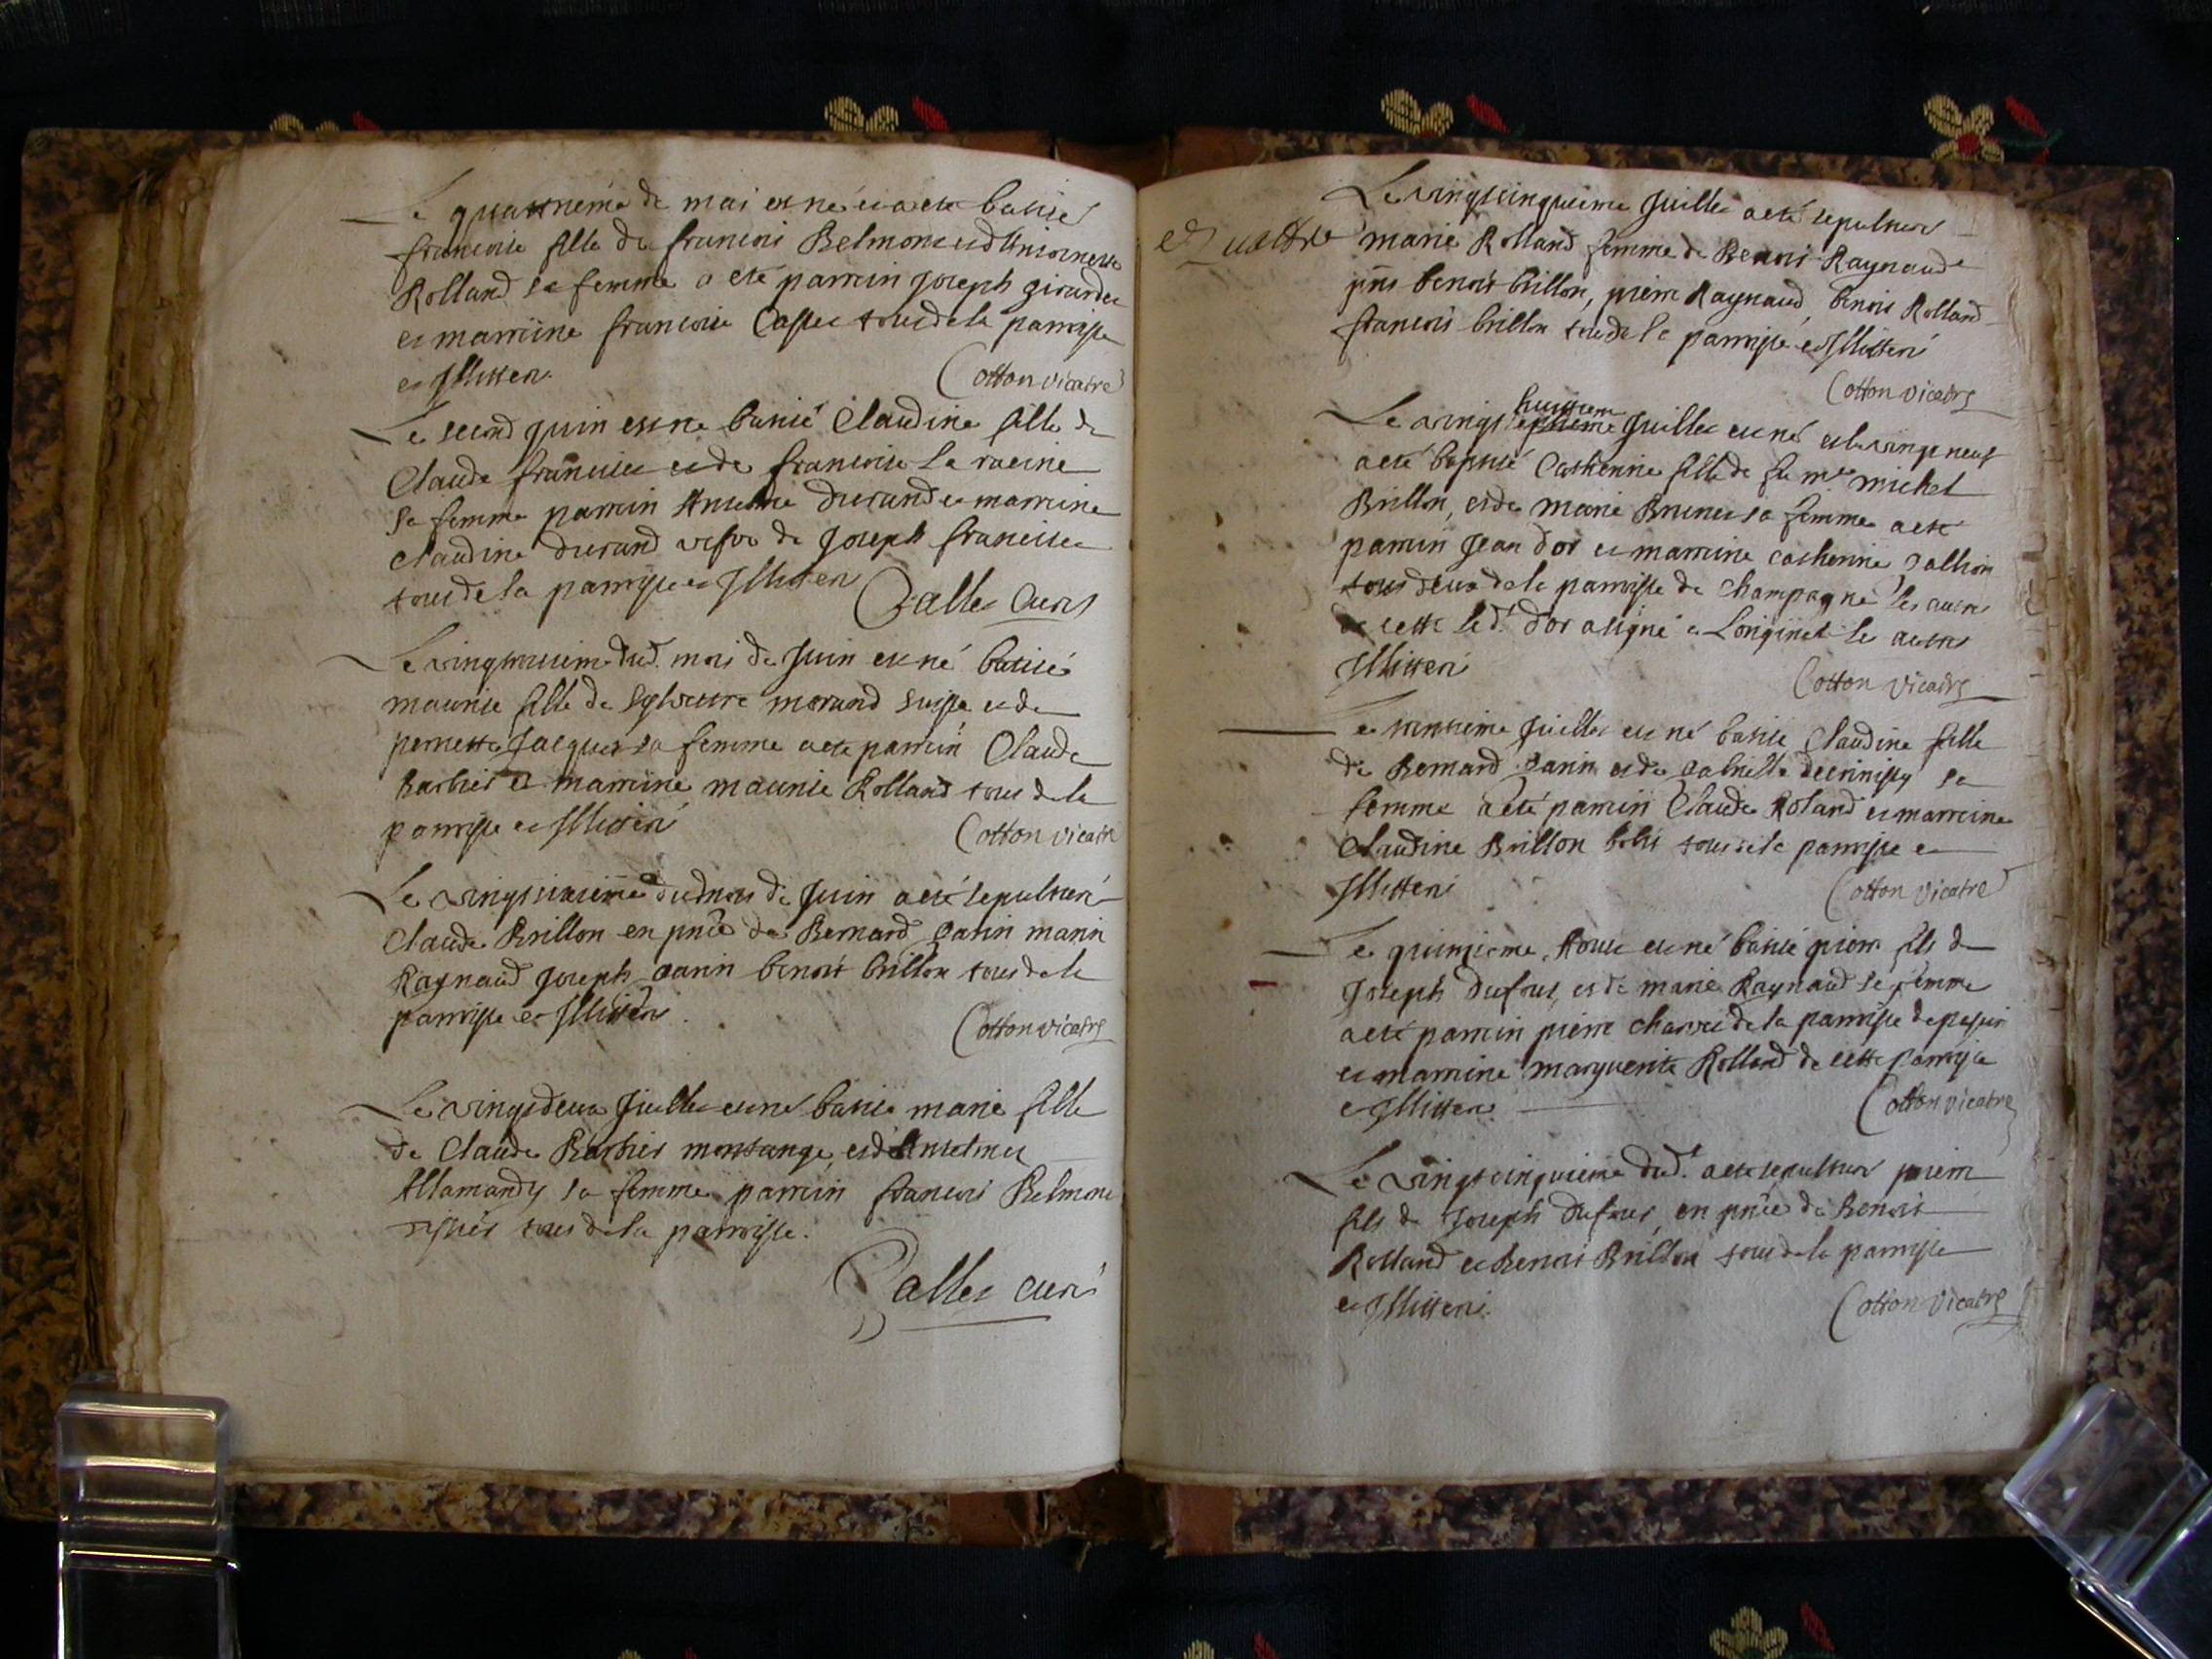 Le quatrieme de mai est né et a eté batisé
francoise fille de francois Belmont et d'Anthoinette
Rolland sa femme a eté parrin Joseph girardet
et marrine francoise Castet tous de la parroisse
et Illitteré.
Cotton vicaire
Le second Juin est ne batisé Claudine fille de
Claude francillet et de francoise la racine
sa femme parrin Anthelme durand et marrine
claudine durand vefve de Joseph francillet
tous de la parroisse et Illiteré
Gallet curé
Le vingt troisieme dud. mois de Juin est né batisé
maurise fille de sylvestre morand suisse et de
pernette Jacquet sa femme a eté parrin Claude
Barbier et marrine maurise Rolland tous de la
parroisse et Illitteré
Cotton vicaire
Le vingt sixieme du d mois de Juin a eté sepulturé
Claude Brillon en pnce de Bernard garin marin
Raynaud Joseph garin benoit brillon tous de la
parroisse et Illitteré
Cotton vicaire
Le vingt deux Juillet est né batisé marie fille
de Claude Barbier montange, et d'Anthelmet
Allamandy sa femme parrin francois Belmont
tous de la parroisse.
Gallet curé
Le vingt cinquieme Juillet a eté sepulturé
et Quattre
marie Rolland femme de Benoit Raynaud
pnts benoit brillon, pierre Raynaud, benoit Rolland
francois brillon tous de la parroisse et Illitteré
Cotton vicaire
huittiem
Le vingt septieme Juillet est né et le vingt neuf
a eté baptisé Catherine fille de fu mre michel
Brillon, et de marie Brunet sa femme a eté
parrin Jean d'or et marrine catherine gallion
tous deux de la parroisse de Champagne les autres
de cette le d. d'or a signé a Longinet les autres
Illitteré
Cotton vicaire
Le trentieme Juillet est né batisé Claudine fille
de Bernard garin et de gabrielle sa
femme a eté parrin Claude Roland et marrine
Claudine Brillon tous de la parroisse et
Illitteré
Cotton vicaire
Le quinzieme Aoust est né batisé pierre fils de
Joseph dufour, et de marie Raynaud sa femme
a eté parrin pierre charvet de la parroisse de passin
et marrine marguerite Rolland de cette parroisse
et Illitteré
Cotton vicaire
Le vingt cinquieme dud. a eté sepulturé pierre
fils de Joseph dufour, en pnce de Benoit
Rolland et Benoit Brillon tous de la parroisse
et Illitteré.
Cotton vicaire